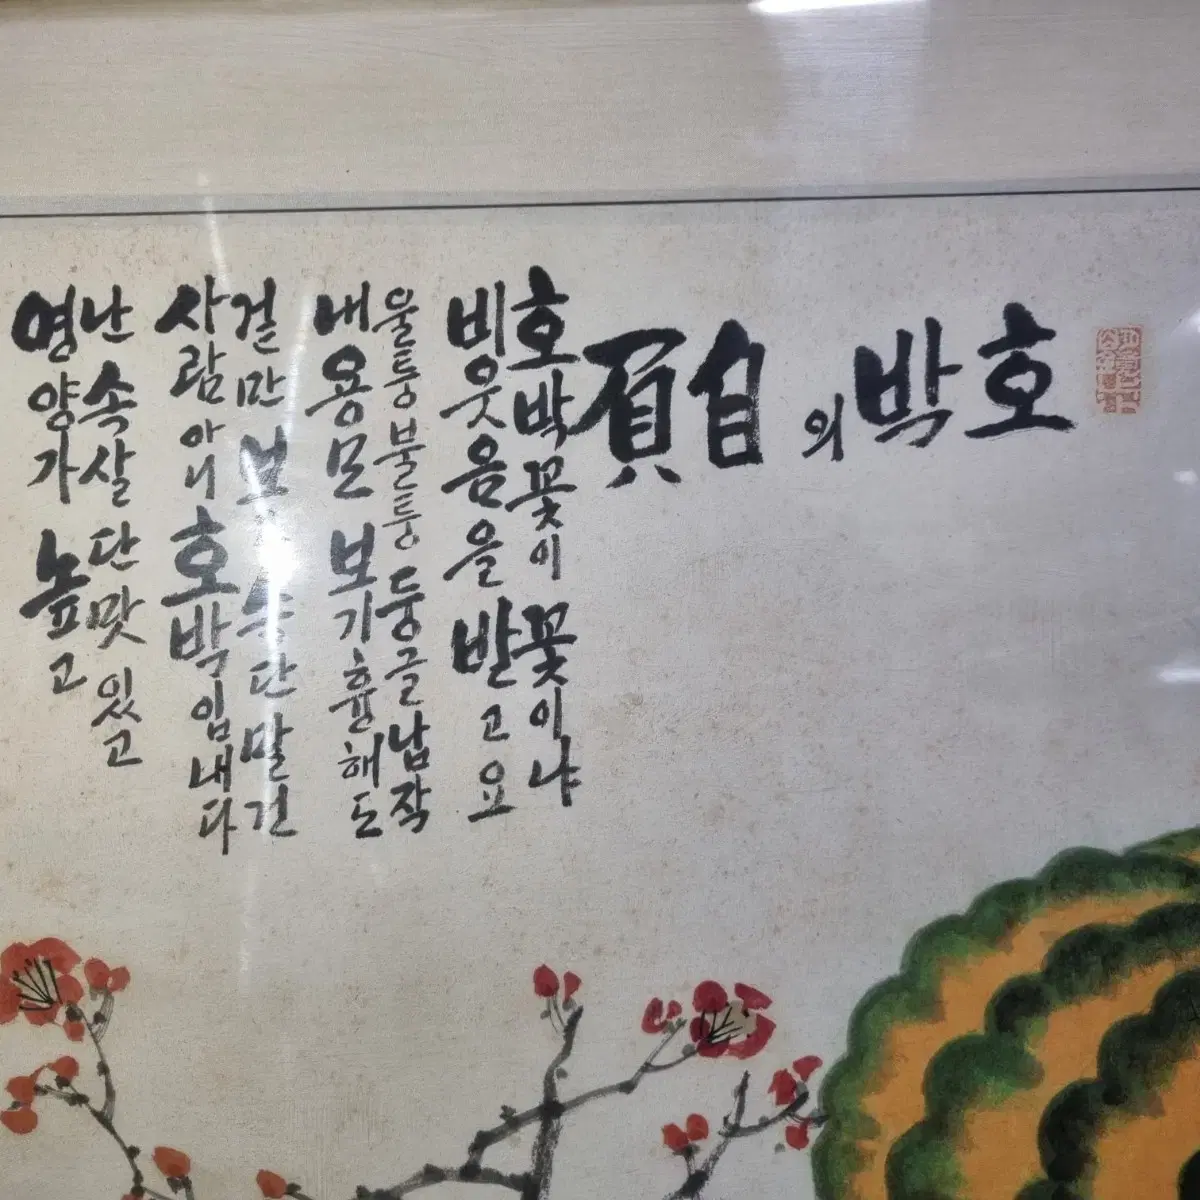 호박의 自負
호박꽃이 꽃이냐
비웃음을 받고요
울퉁불퉁 둥글납작
내 용모 보기 흉해도
겉만 속단 말건
사람 아니 호박입내다
난 속살 단맛 있고
영양가 높고